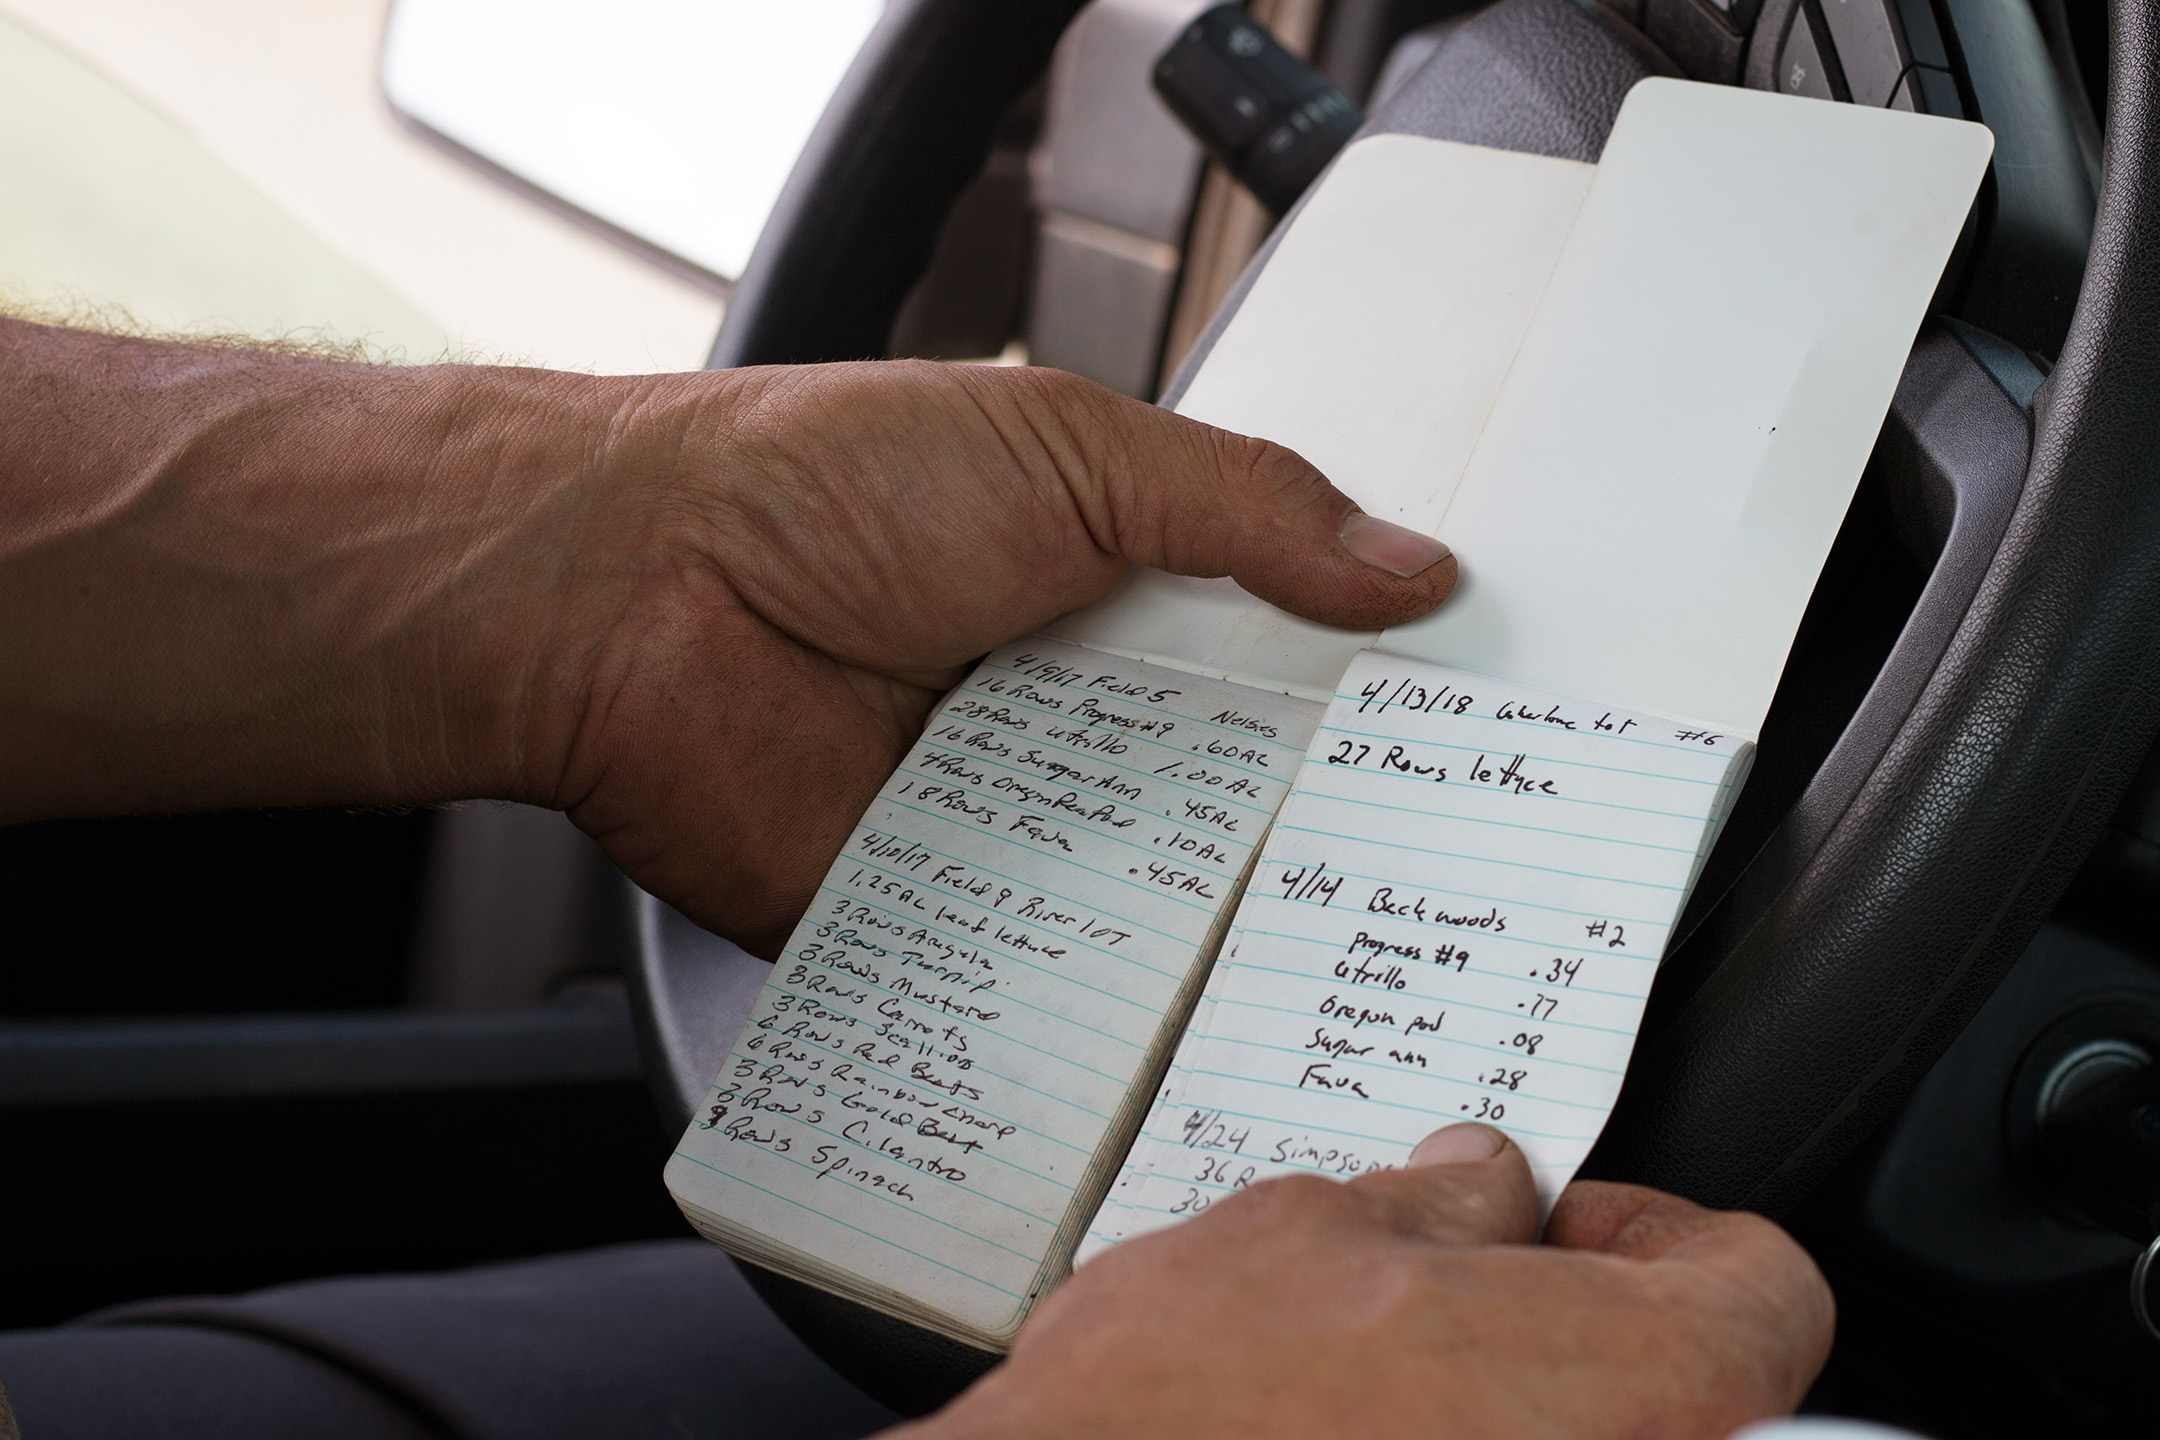 4/9/17 Field 5 Nelsies
16 Rows Progress #9 .60AC
28 Rows Utrillo 1.00 AC
16 Rows Sugar Ann .45AC
4 Rows Oregon .10AC
18 Rows Fava .45AC
4/10/17 Field 9 River lot
1.25AC leaf lettuce
3 Rows Arugula
3 Rows Turnip
3 Rows Mustard
3 Rows Carrots
3 Rows Scallions
6 Rows Red Beets
6 Rows Rainbow Chard
3 Rows Gold Beet
3 Rows Cilantro
9 Rows Spinach
4/13/18 lot #6
27 Rows lettuce
4/14 Backwoods #2
Progress #9 .34
Utrillo .77
Oregon pod .08
Sugar ann .28
Fava .30
4/24 Simpson
36 R
30